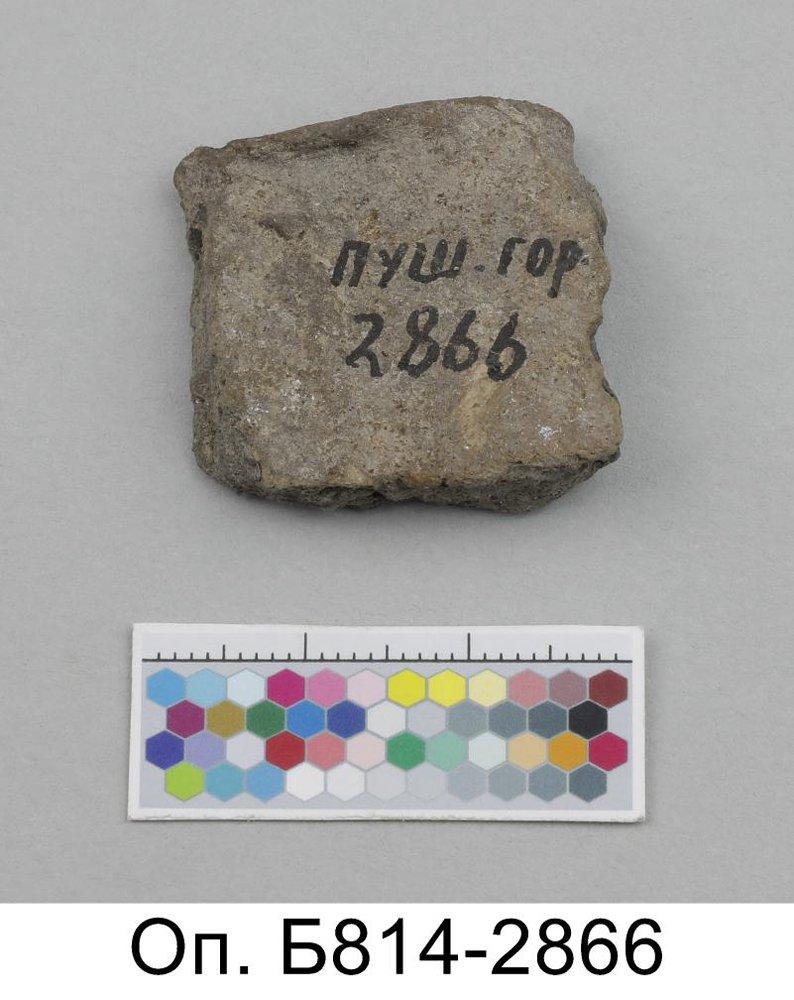 ПУШ. ГОР
2866
Оп. Б814-2866